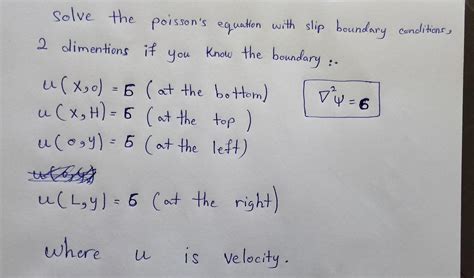 solve the poisson's equation with slip boundary conditions,
2 dimentions if you know the boundary :-
u(x,0) = 5 (at the bottom)
u(x,H) = 5 (at the top)
∇²ψ = 6
u(0,y) = 5 (at the left)
u(L,y) = 5 (at the right)
where u is velocity.